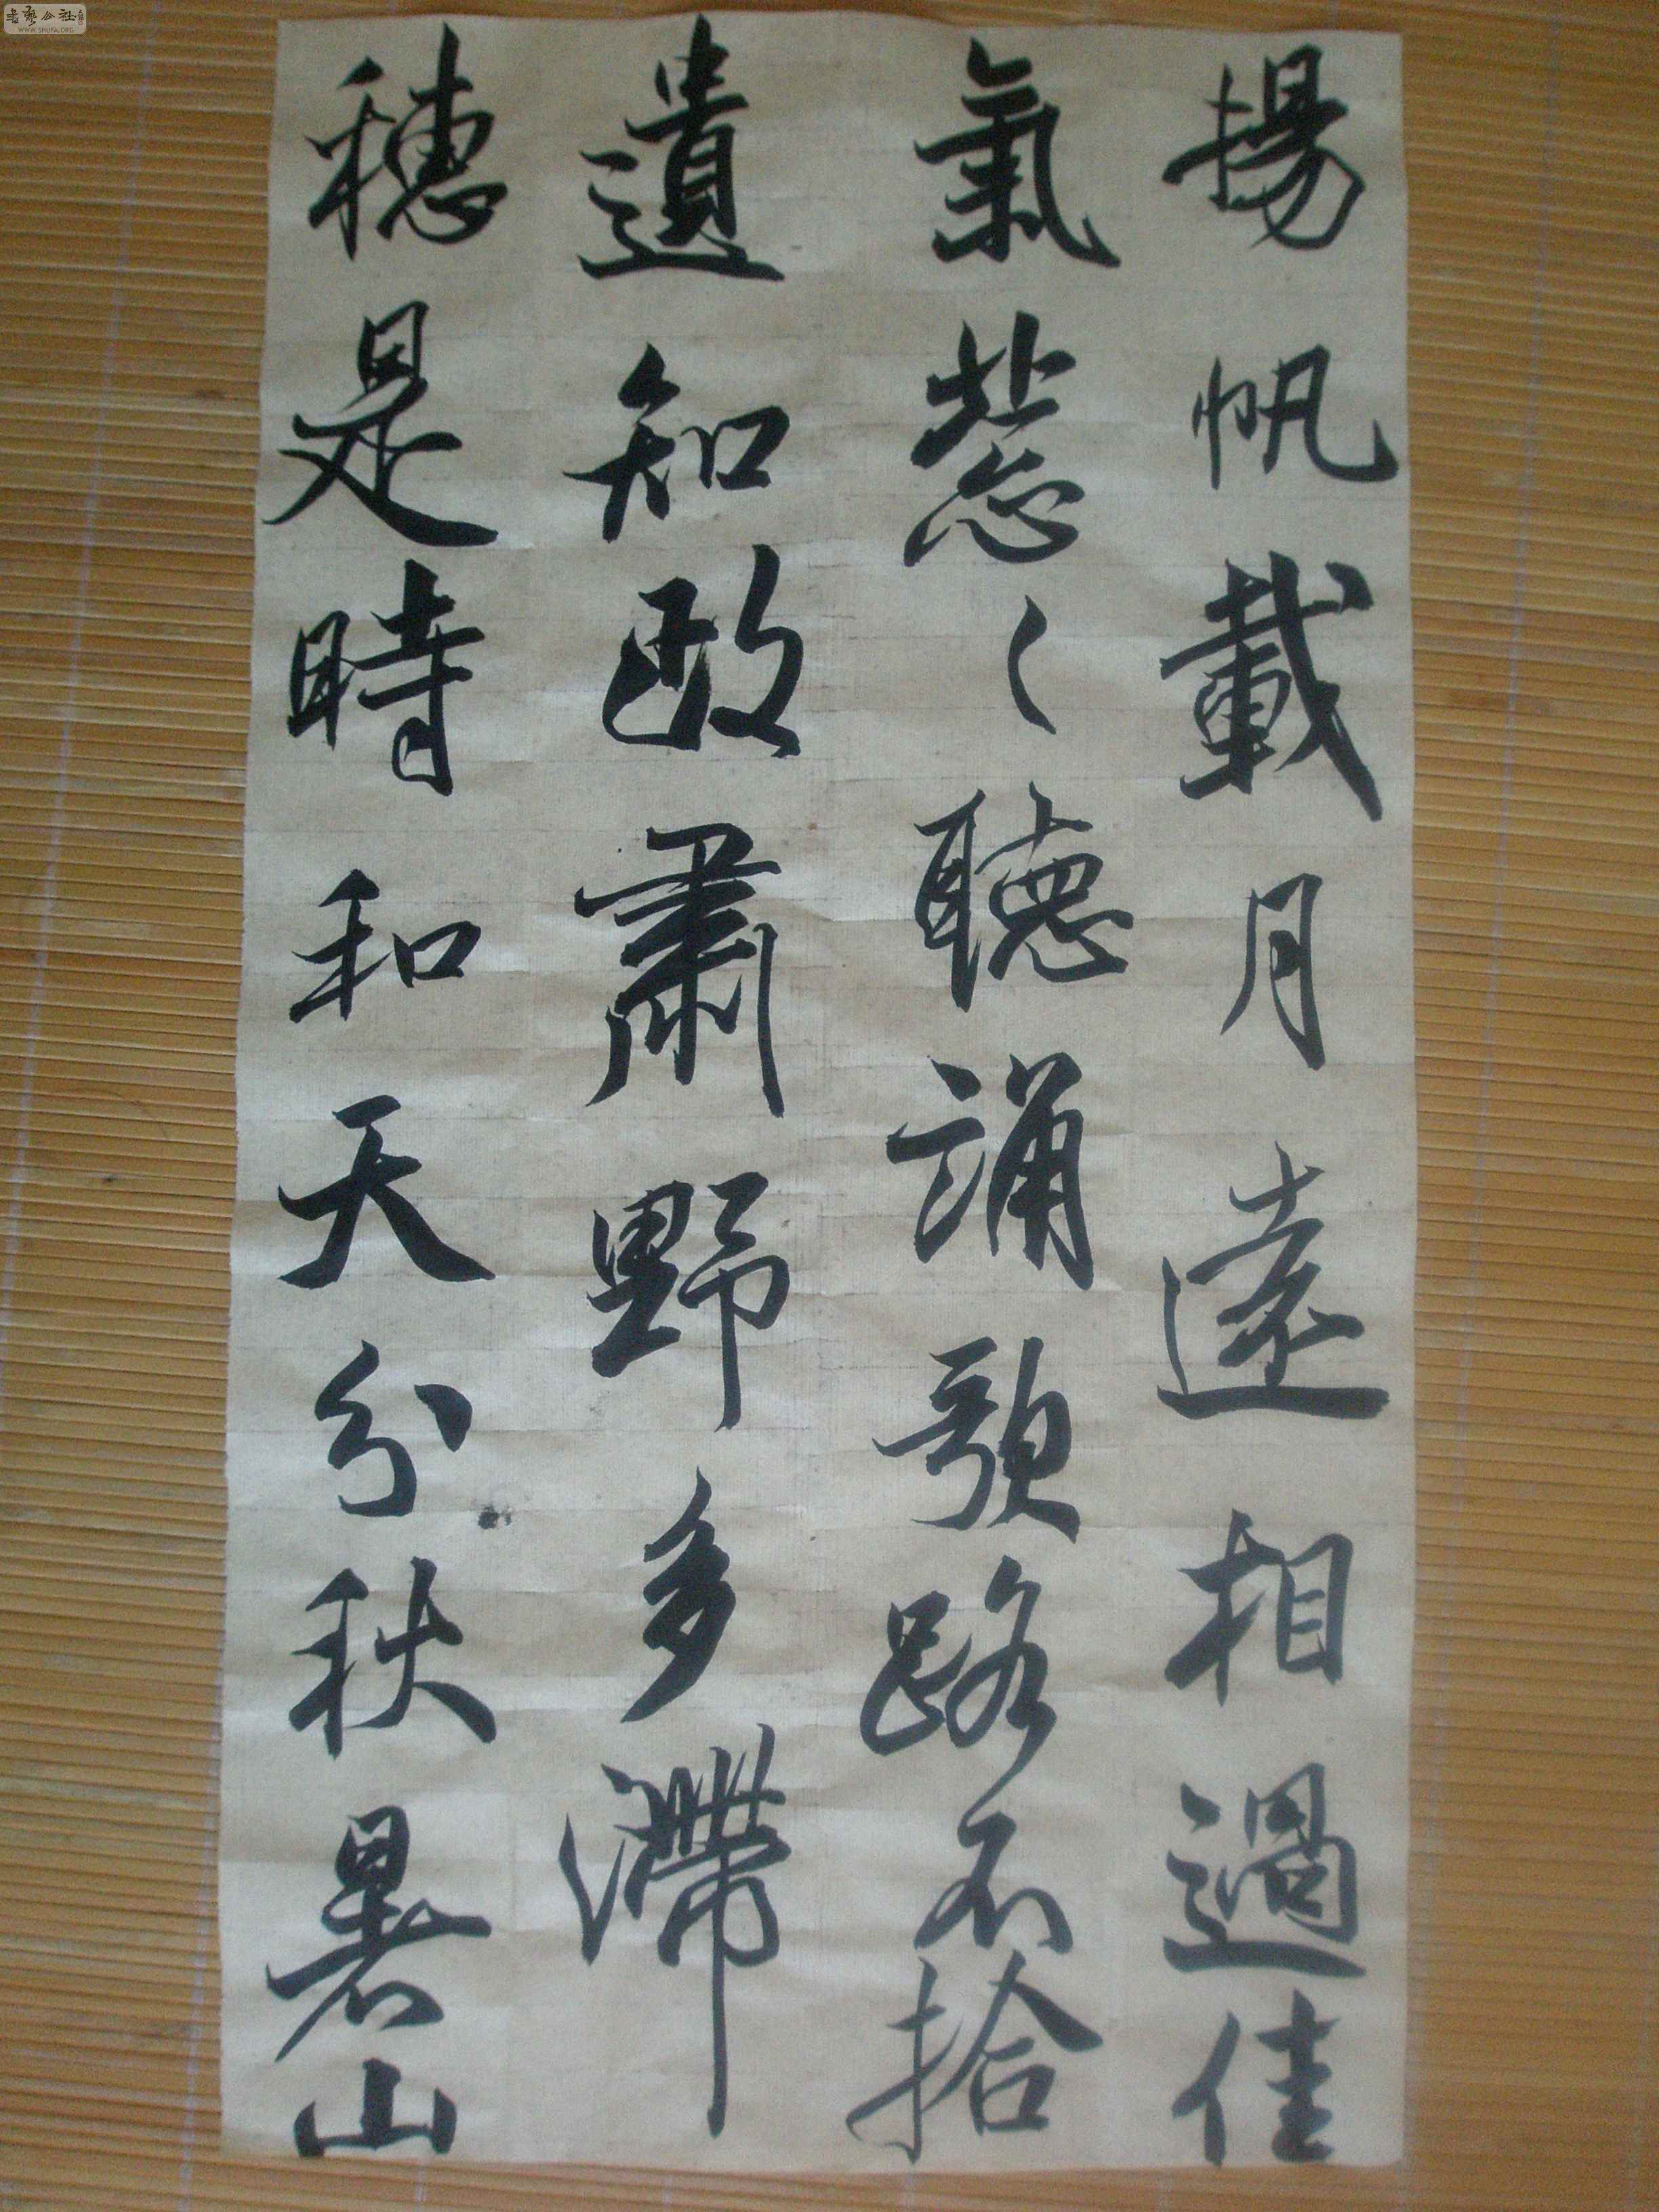 揚帆載月遠相過佳
氣蔥〻聽誦歌路不拾
遺知政肅野多滯
穗是時和天分秋暑山
書藝公社
WWW.SHUFA.ORG